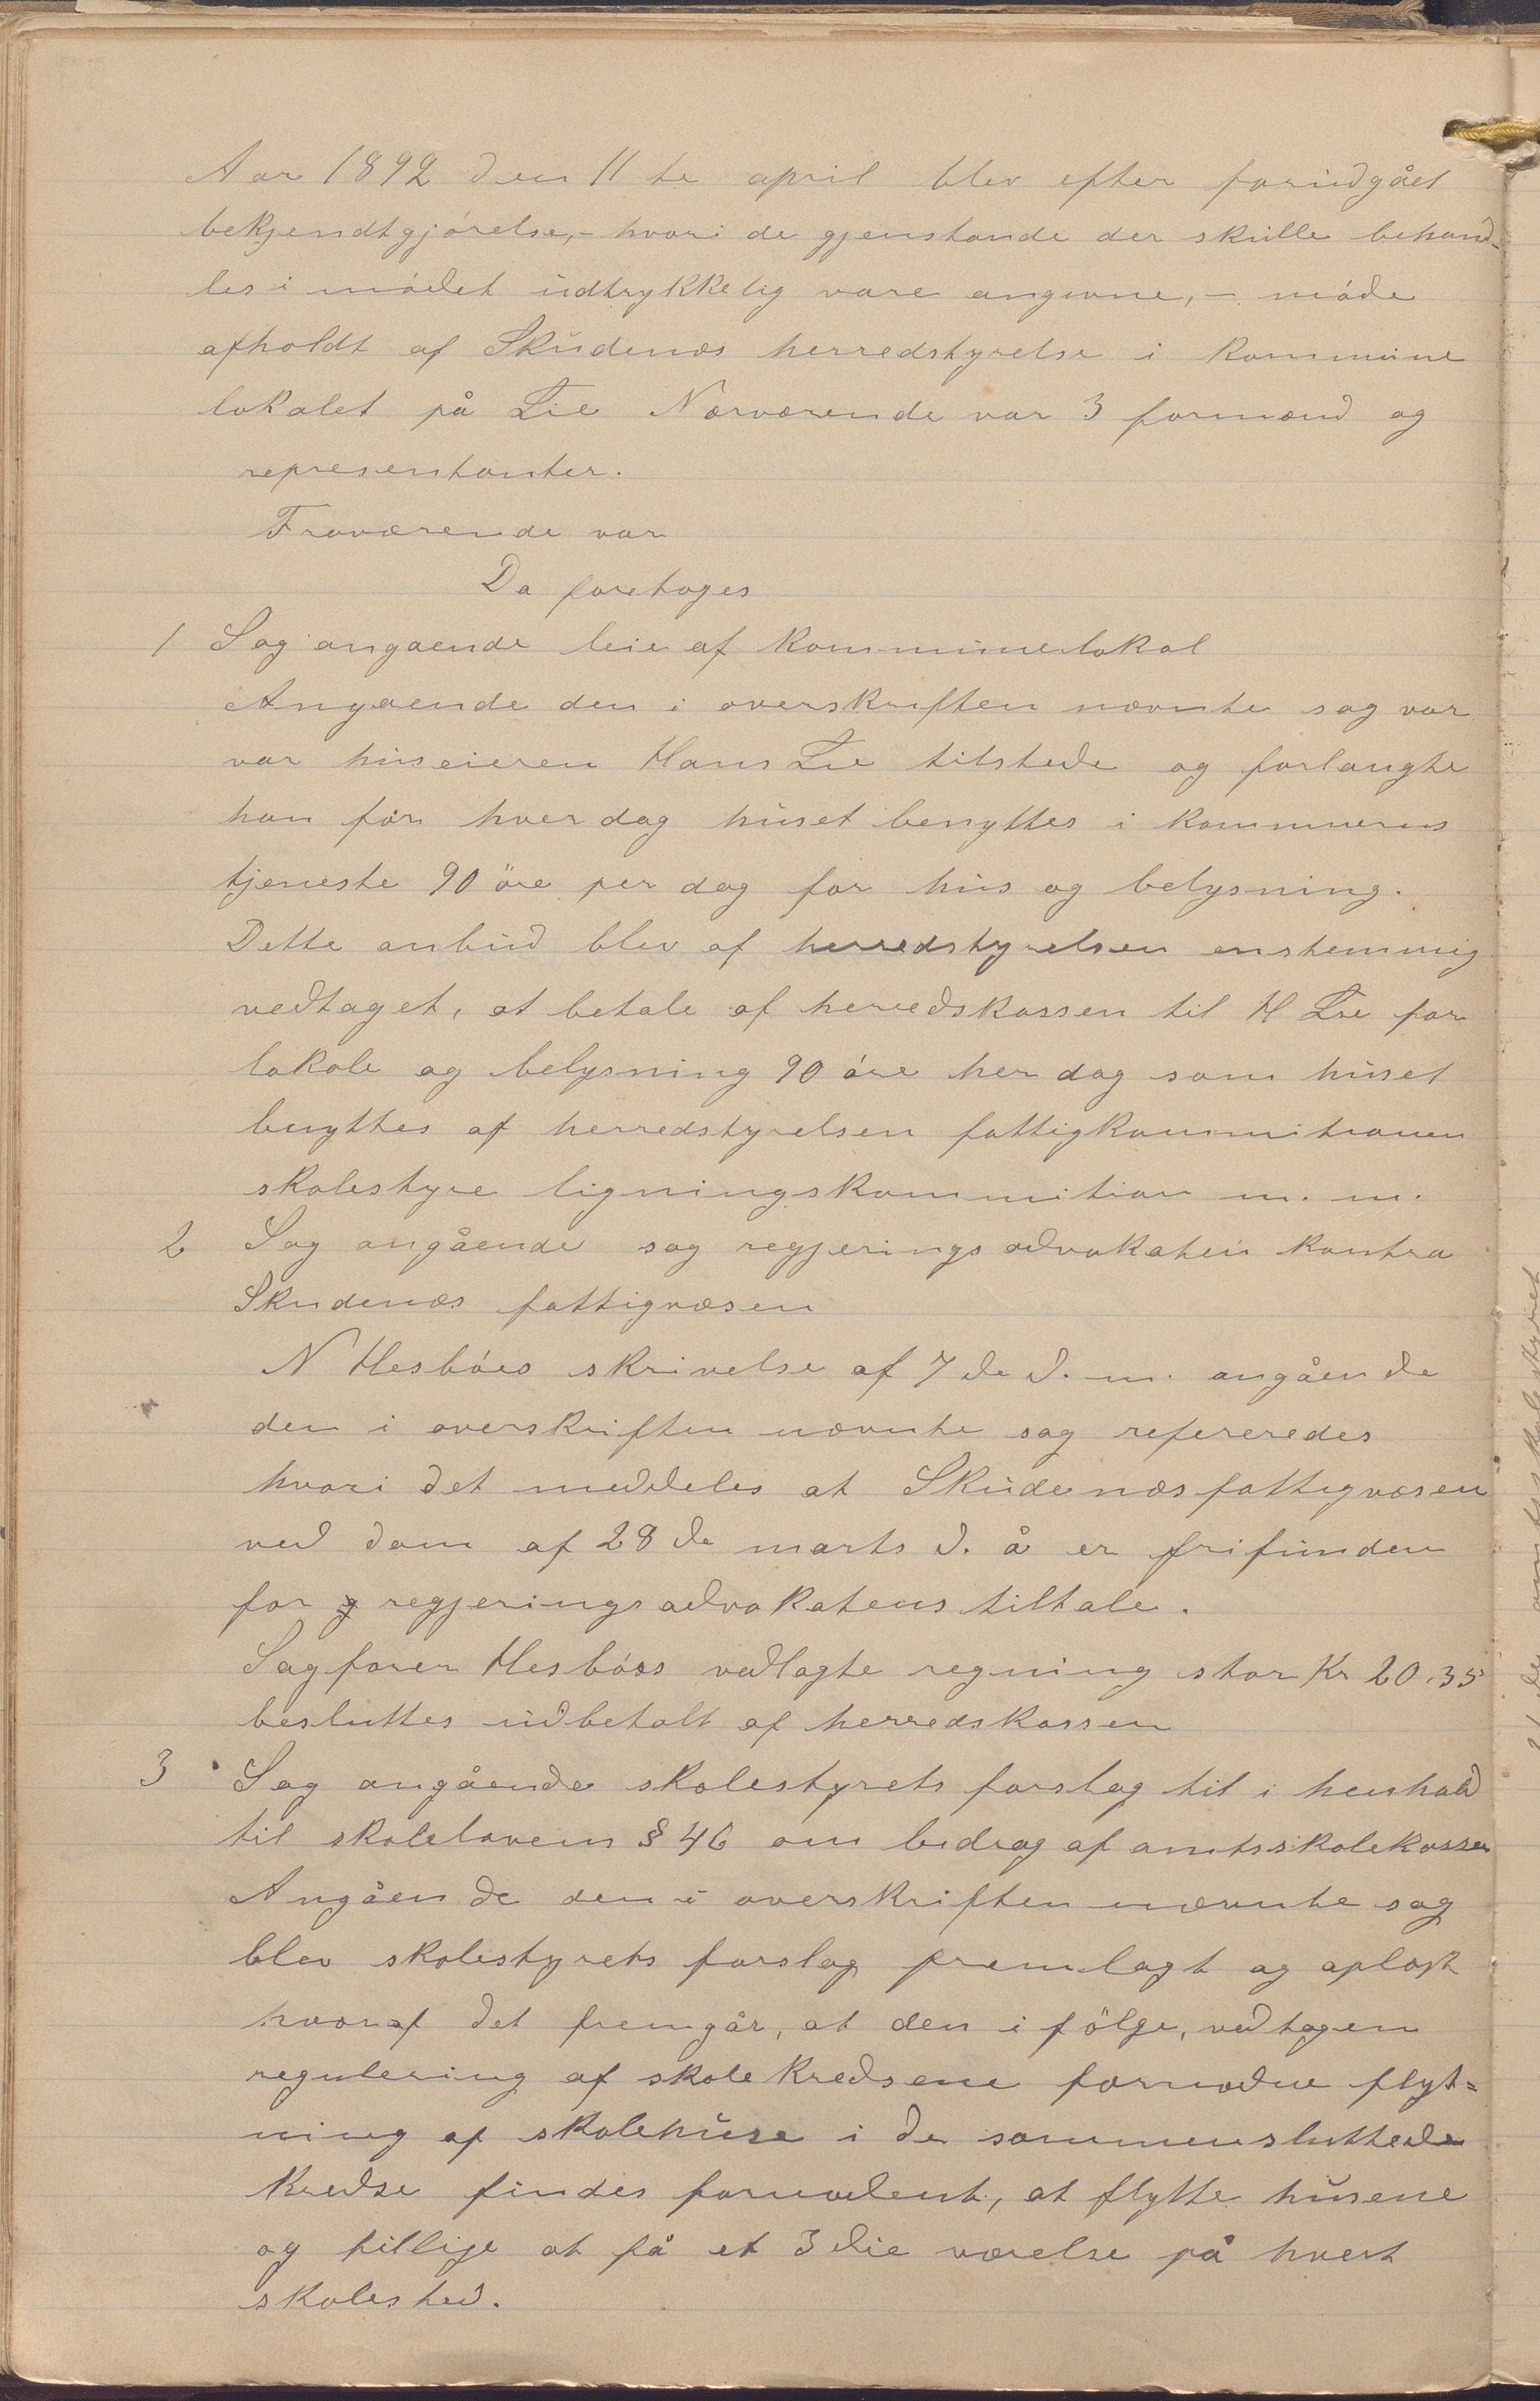 Aar 1892 den 11te april blev efter forudgået
bekjendtgjórelse,- hvori de gjenstande der skulle behand-
les i módet udtrykkelig vare angivne,- móde
afholdt af Skudenæs herredstyrelse i kommune
lokalet på Lie Nærværende var 3 formænd og
representanter.
Fraværende var
Da foretoges
1 Sag angaende leie af kommunelokal
Angaende den i overskriften nævnte sag var
var huseieren Hans Lie tilstede og forlangte
han for hver dag huset benyttes i kommunens
tjeneste 90 öre per dag for hus og belysning.
Dette anbud blev af herredstyrelsen enstemmig
vedtaget, at betale af herredskassen til H Lie for
lokale og belysning 90 óre her dag som huset
benyttes af herredstyrelsen fattigkommitionen
skolestyre ligningskommition m. m.
2 Sag angående sag regjerings advokaten kontra
Skudenæs fattigvæsen
N Hesbóes skrivelse af 7de d. m. angående
den i overskriften nævnte sag refereredes
hvori det meddeles at Skudenæs fattigvæsen
ved dom af 28de marts d. å er frifunden
for regjeringsadvokatens tiltale.
Sagforer Hesbóes vedlagte regning stor Kr 20.35
besluttes udbetalt af herredskassen
3 Sag angående skolestyrets forslag til i henhold
til skoleloven § 46 om bidrag af amtsskolekassen
Angående den i overskriften nævnte sag
blev skolestyrets forslag fremlagt og oplæst
hvoraf det fremgår, at den i fölge, vedtagen
regulering af skolekredsene fornødne flyt=
ning af skolehuse i de sammensluttede
kredse findes fornødent, at flytte husene
og tillige at få et 3die værelse på hvert
skolested.